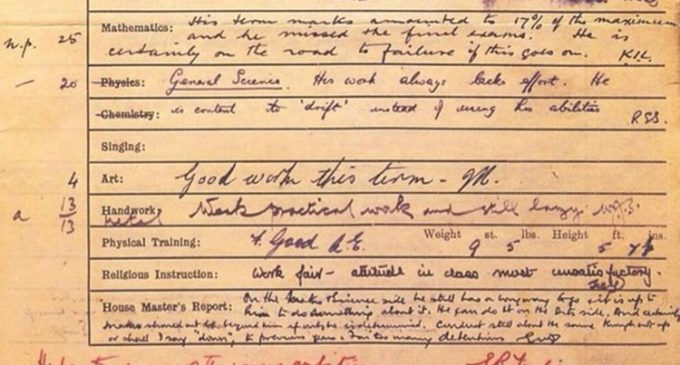 Mathematics: His term marks amounted to 17% of the maximum
n.p. 25 and he missed the final exams. He is
certainly on the road to failure if this goes on. K.I.L.
— 20 Physics: General Science. His work always lacks effort. He
Chemistry: is content to 'drift' instead of using his abilities R.S.S.
Singing:
4 Art: Good work this term -
a 13/13 Handwork: Metal Weak practical work and still lazy
Physical Training: V. Good A.E. Weight 9 st. 5 lbs. Height 5 ft. 7½ ins.
Religious Instruction: Work fair - attitude in class most unsatisfactory.
House Master's Report: On the Maths & Science side he still has a long way to go & it is up to
him to do something about it. He can do it on the Arts side. And certainly
Maths should not be beyond him if only he is determined. Conduct still about the same though up
or shall I say "down", to previous years. Far too many detentions